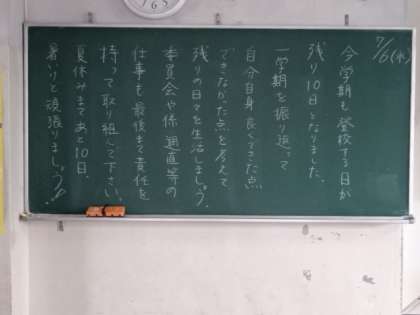 7/6(水)
今学期も登校する日が
残り10日となりました。
一学期を振り返って
自分自身良くできた点
できなかった点を考えて
残りの日々を生活しましょう。
委員会や係、週直等の
仕事も最後まで責任を
持って取り組んで下さい。
夏休みまであと10日。
暑いけど頑張りましょう!